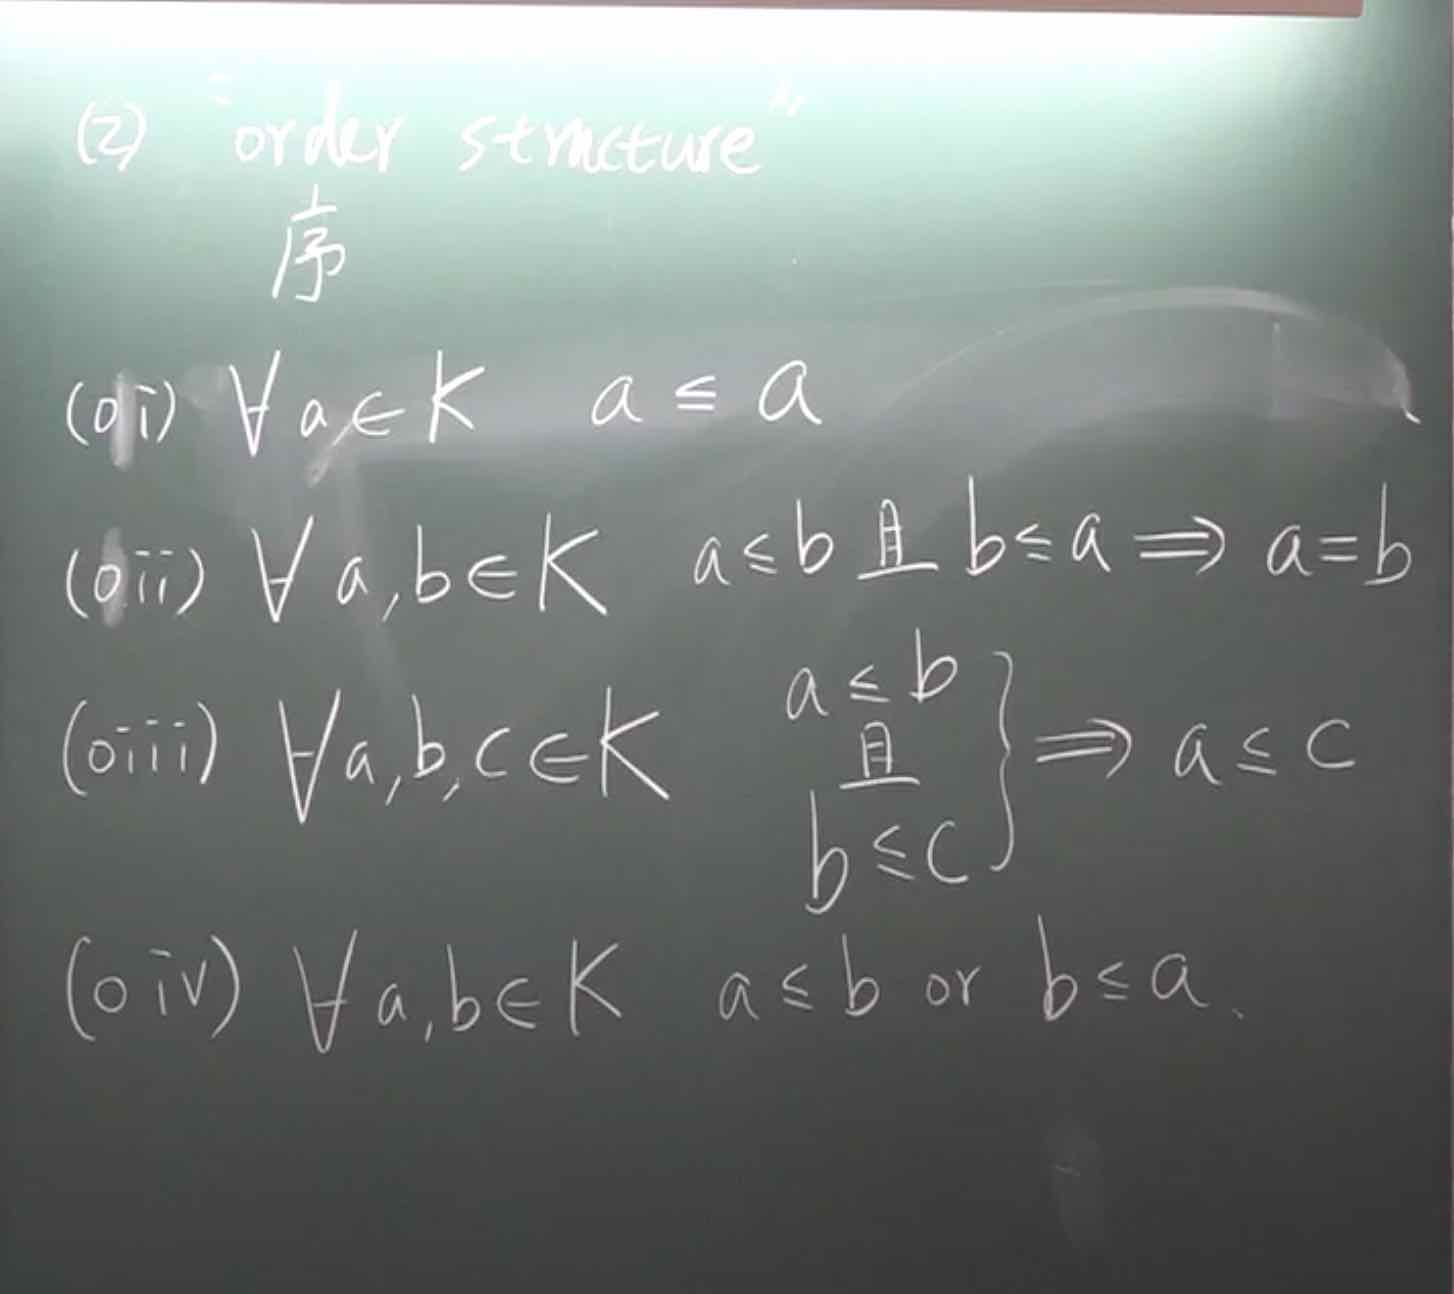 (2) "order structure"
序
(oi) ∀a∈K a≤a
(oii) ∀a,b∈K a≤b且b≤a⟹a=b
(oiii) ∀a,b,c∈K a≤b 且 b≤c } ⟹ a≤c
(oiv) ∀a,b∈K a≤b or b≤a.